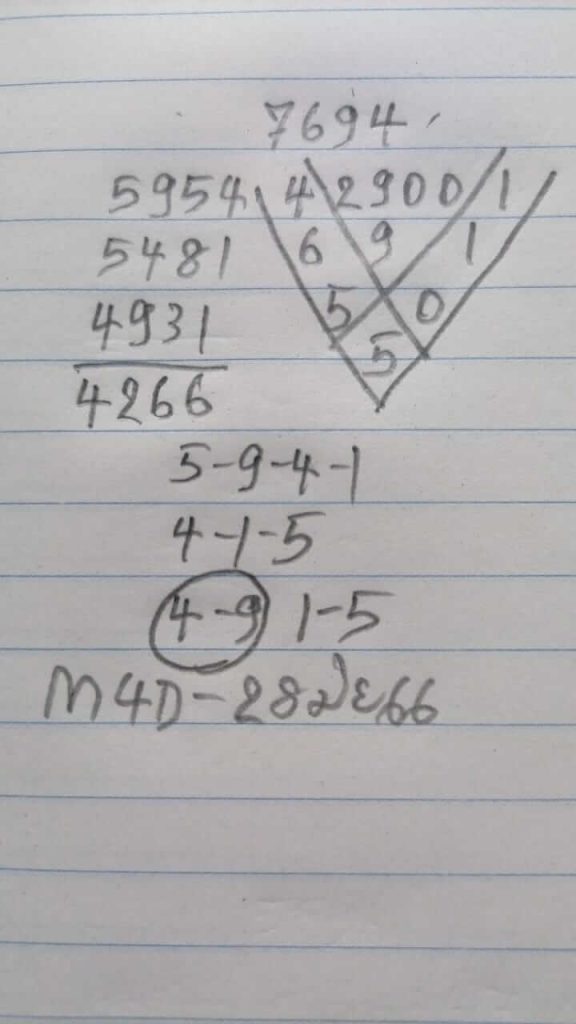 7694
5954 4 2900 1
5481 6 9 1
4931 5 0
5
4266
5-9-4-1
4-1-5
4-9 1-5
M4D-28มีย66